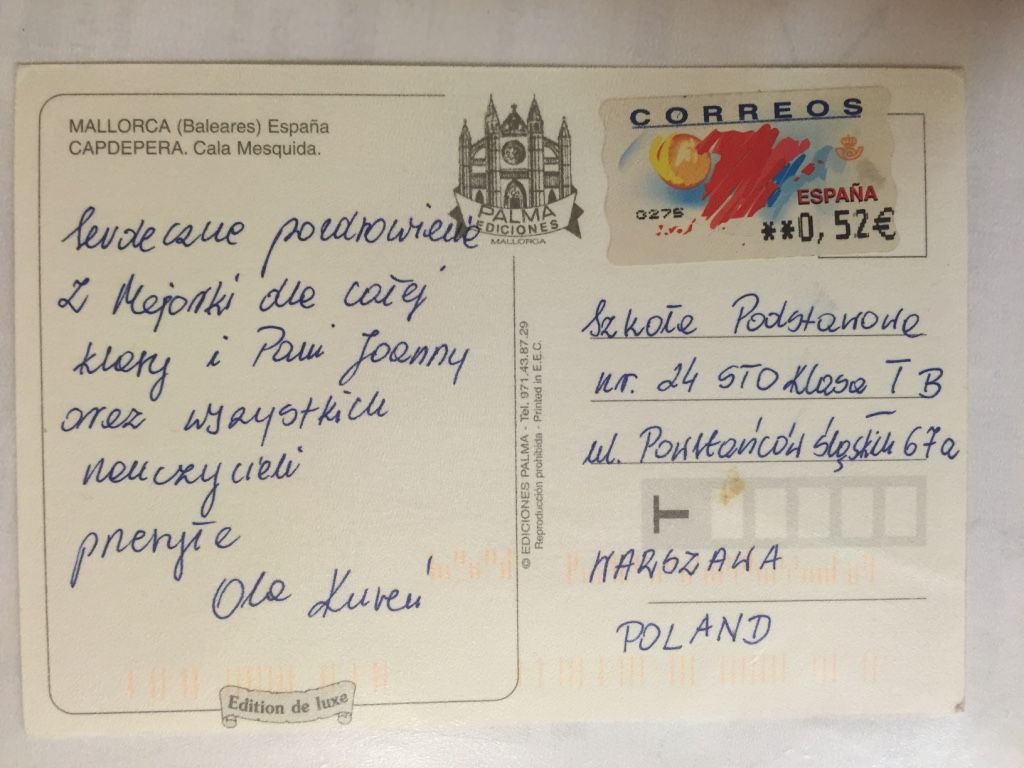 MALLORCA (Baleares) España
CAPDEPERA. Cala Mesquida.
Serdeczne pozdrowienia
z Majorki dla całej
klasy i Pani Joanny
oraz wszystkich
nauczycieli
przesyła
Ola
PALMA
EDICIONES
MALLORCA
CORREOS
ESPAÑA
0275
**0,52€
© EDICIONES PALMA - Tel. 971.43.87.29
Reproducción prohibida - Printed in E.E.C.
Szkoła Podstawowa
nr. 24 STO Klasa I B
ul. Powstańców Śląskich 67a
T
WARSZAWA
POLAND
Edition de luxe